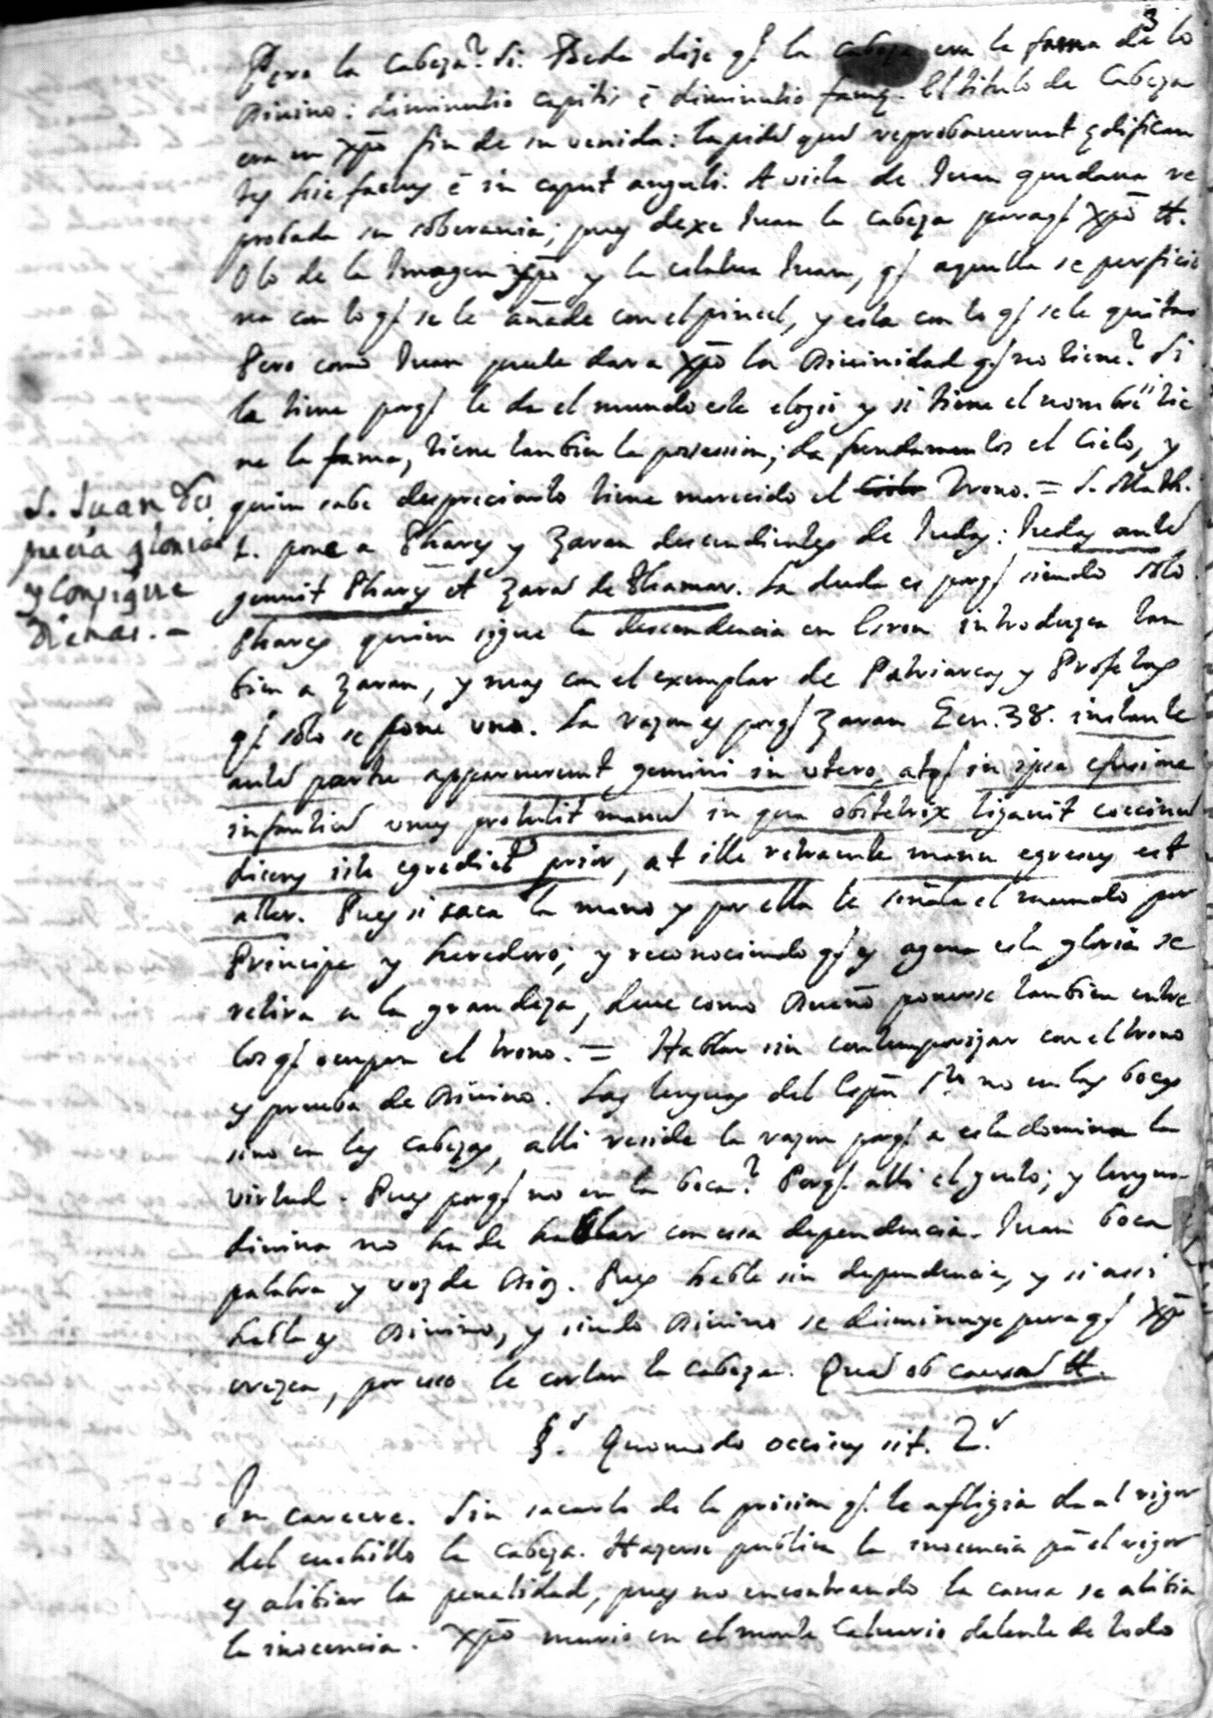 3
Pero la Cabeza? Si. Beda dize q̃ la cabeza era la fama de lo
Divino: diminutio capitis ẽ diminutio famę. El titulo de Cabeza
era en Xp̃o fin de su venida: lapidẽ quẽ reprobauerunt ędifican
tes hic factus ẽ in caput anguli. A vista de Juan quedaua re
probada su soberania; pues dexe Juan la cabeza paraq̃ Xp̃o &.
O lo de la Imagen Xp̃o y la estatua Juan, q̃ aquella se perficio
na con lo q̃ se le añade con el pincel, y esta con lo q̃ se le quita
Pero como Juan puede dar a Xp̃o la Divinidad q̃ no tiene? Si
la tiene porq̃ le da el mundo este elogio y si tiene el nombre tie
ne la fama, tiene tambien la possession; da fundamentos el Cielo, y
quien sabe despreciarlo tiene merecido el Trono. = S. Math.
1. pone a Phares y Zaran descendientes de Judas: Judas autẽ
genuit Phares et Zarã de Thamar. La duda es porq̃ siendo solo
Phares quien sigue la descendencia en Esron introduzca tam
bien a Zaran, y mas con el exemplar de Patriarcas y Profetas
q̃ solo se pone uno. La razon es porq̃ Zaran Gen. 38. instante
autẽ partu apparuerunt gemini in utero, atq̃ in ipsa efusione
infantiũ unus protulit manũ in qua obstetrix ligauit coccinũ
dicens iste egrediet prior, at ille retraente manu egresus est
alter. Pues si saca la mano y por ella le señala el mundo por
Principe y heredero; y reconociendo q̃ es agena esta gloria se
retira a la grandeza, deue como Dueño ponerse tambien entre
los q̃ ocupan el trono. = Hablar sin contemporizar con el trono
es prueba de Divino. Las lenguas del Esp̃u Sto no en las bocas
sino en las cabezas, alli reside la razon porq̃ a esta domina la
virtud. Pues porq̃ no en la boca? Porq̃ alli el gusto; y lengua
divina no ha de hablar con essa dependencia. Juan boca
palabra y voz de Dios. Pues hable sin dependencia, y si assi
habla es Divino, y siendo Divino se disminuye para q̃ Xp̃o
crezca, por esso le cortan la cabeza. Quã ob causã &.
§. Quomodo occisus sit. 2.
In carcere. Sin sacarlo de la prision q̃ le afligia da al rigor
del cuchillo la cabeza. Hazerse publica la inocencia pã el rigor
es alibiar la penalidad, pues no encontrando la causa se alibia
la inocencia. Xp̃o murio en el monte Caluario delante de todo
S. Juan des
precia glorias
y consigue
Dichas. -